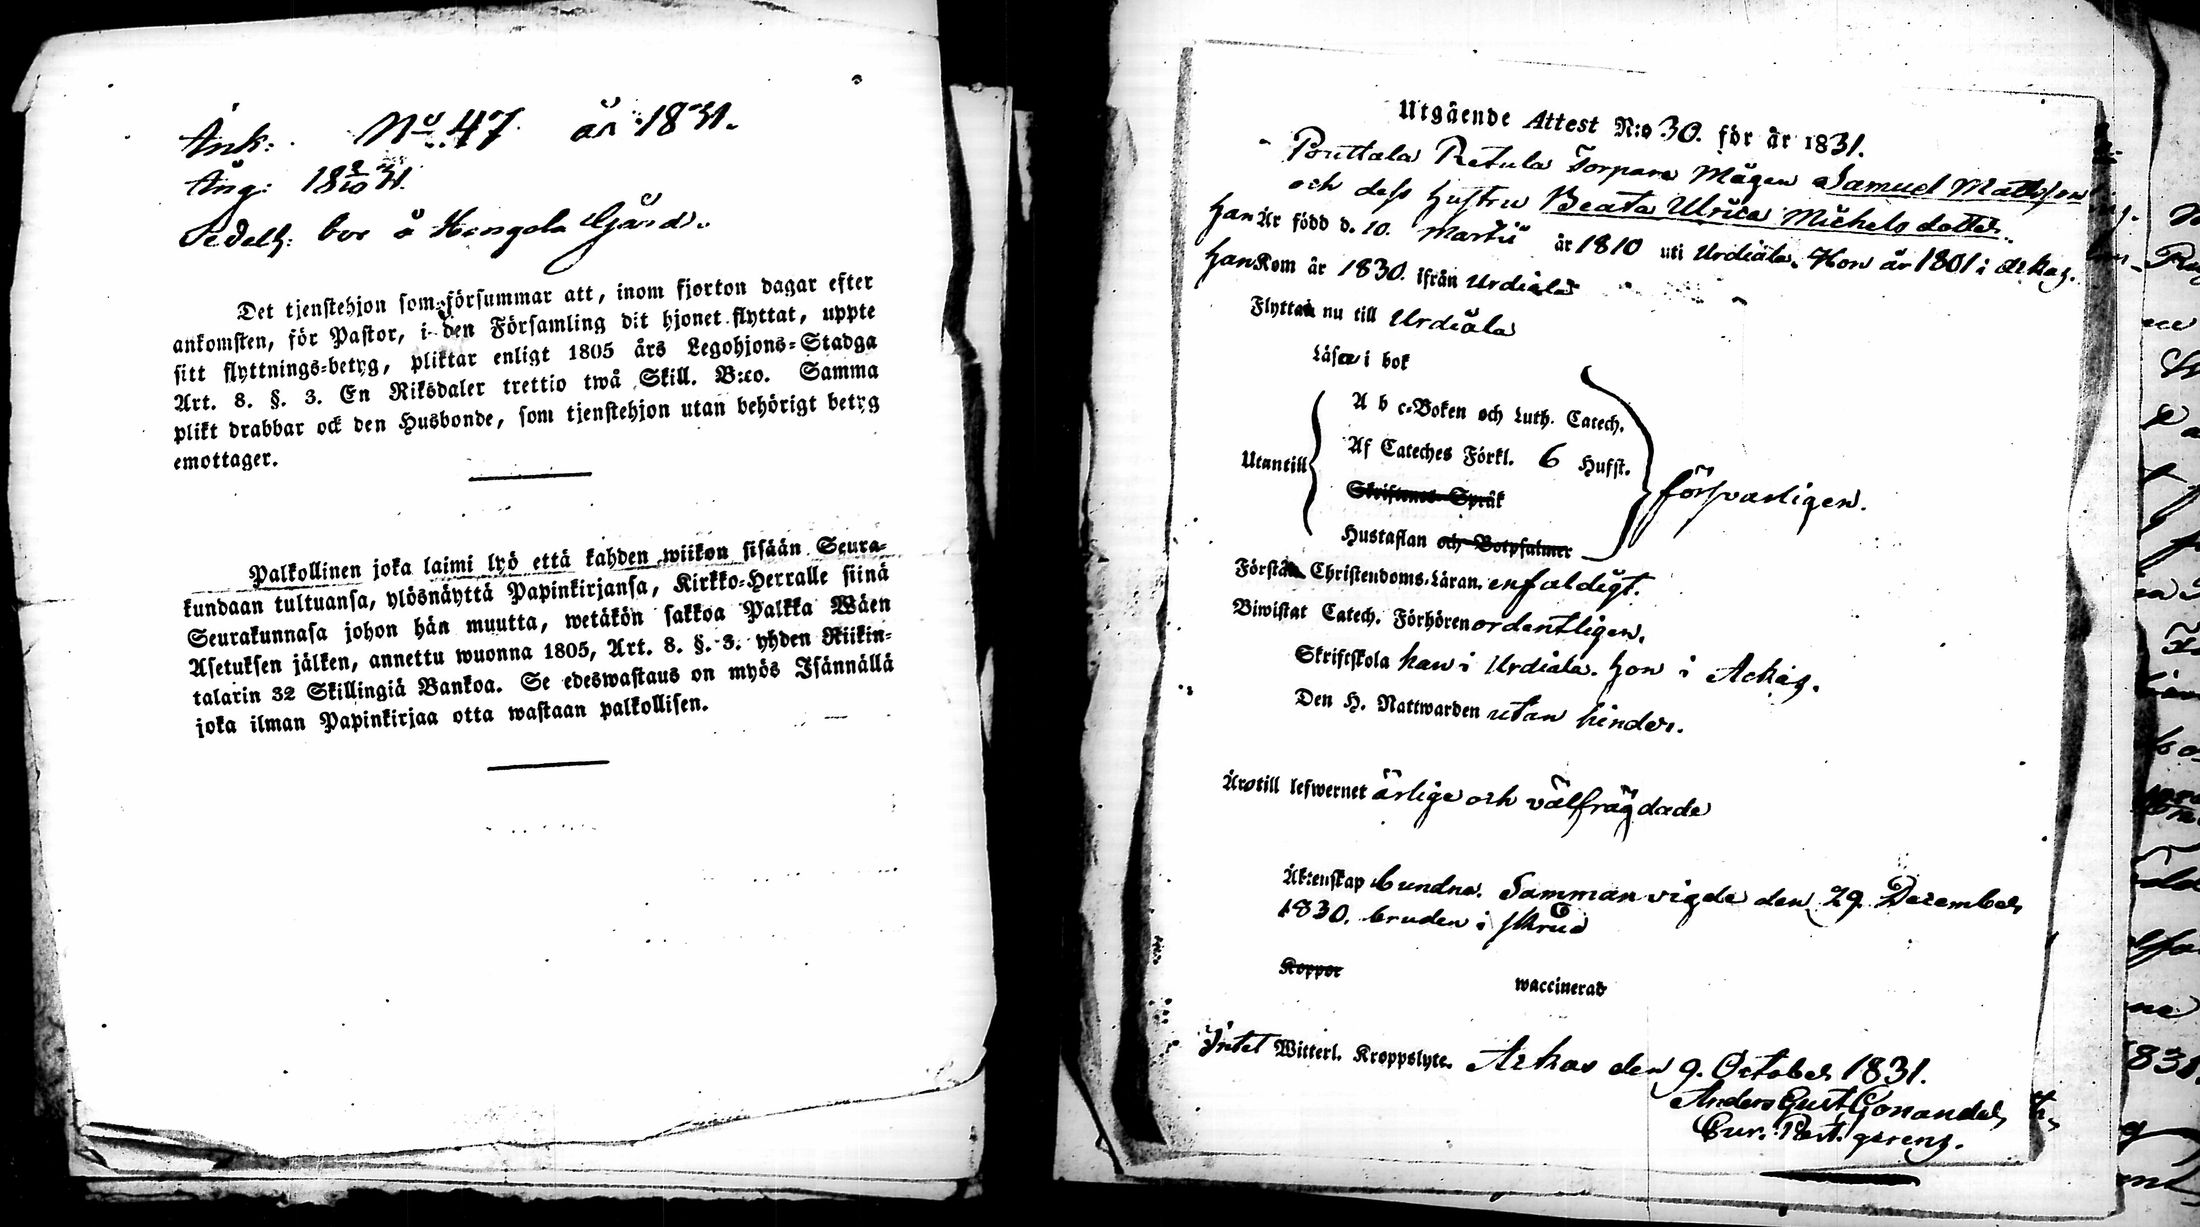 Ank: No 47 år 1831.
Ång: 18 9/10 31.
Sedelh: bor å Hongola Gård.
Det tjenstehjon som försummar att, inom fjorton dagar efter
ankomsten, för Pastor, i den Församling dit hjonet flyttat, uppte
sitt flyttnings-betyg, pliktar enligt 1805 års Legohjons-Stadga
Art. 8. §. 3. En Riksdaler trettio twå Skill. B:co. Samma
plikt drabbar ock den Husbonde, som tjenstehjon utan behörigt betyg
emottager.
Palkollinen joka laimi lyö että kahden wiikon sisään Seura-
kundaan tultuansa, ylösnäyttä Papinkirjansa, Kirkko-Herralle siinä
Seurakunnasa johon hän muutta, wetäkön sakkoa Palkka Wäen
Asetuksen jälken, annettu wuonna 1805, Art. 8. §. 3. yhden Riikin-
talarin 32 Skillingiä Bankoa. Se edeswastaus on myös Isännällä
joka ilman Papinkirjaa otta wastaan palkollisen.
Utgående Attest N:o 30. för år 1831.
Pouttala Retula Torpare Mågen Samuel Mattsson
och dess hustru Beata Ulrica Michelsdotter.
Han Är född d. 10. Martii år 1810 uti Urdiala. Hon år 1801 i Ackas.
Han Kom år 1830. ifrån Urdiala
Flytta nu till Urdiala
Läsa i bok
A b c-Boken och Luth. Catech.
Utantill Af Cateches Förkl. 6 Hufst. försvarligen.
Skriftenes Språk
Hustaflan och Botpsalmer
Förstå Christendoms-Läran. enfaldigt.
Biwistat Catech. Förhören ordentligen.
Skriftskola han i Urdiala. hon i Ackas.
Den H. Nattwarden utan hinder.
Äro till lefwernet ärlige och välfrägdade
Äktenskap bundne. Sammanvigde den 29 December
1830. bruden i skrud
Koppor waccinerad
Intet Witterl. Kroppslyte. Ackas den 9. October 1831.
Anders Gust Gonander
Cur. Past. gerens.